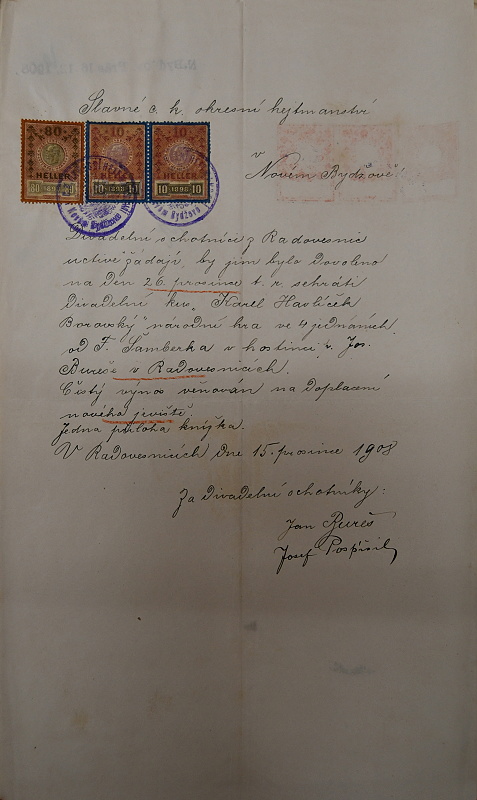 Slavné c. k. okresní hejtmanství
v
Novém Bydžově!
80
HELLER
80 1898
10
HELLER
10 1898
10
HELLER
10 1898 10
Divadelní ochotníci z Radovesnic
uctivě žádají, by jim bylo dovoleno
na den 26. prosince t. r. sehráti
Divadelní kus „Karel Havlíček
Borovský" národní hra ve 4 jednáních
od F. Šamberka v hostinci p. Jos.
Bureše v Radovesnicích.
Čistý výnos věnován na doplacení
nového jeviště.
Jedna příloha knížka.
V Radovesnicích dne 15. prosince 1908
Za divadelní ochotníky:
Jan Bureš
Josef Pospíšil